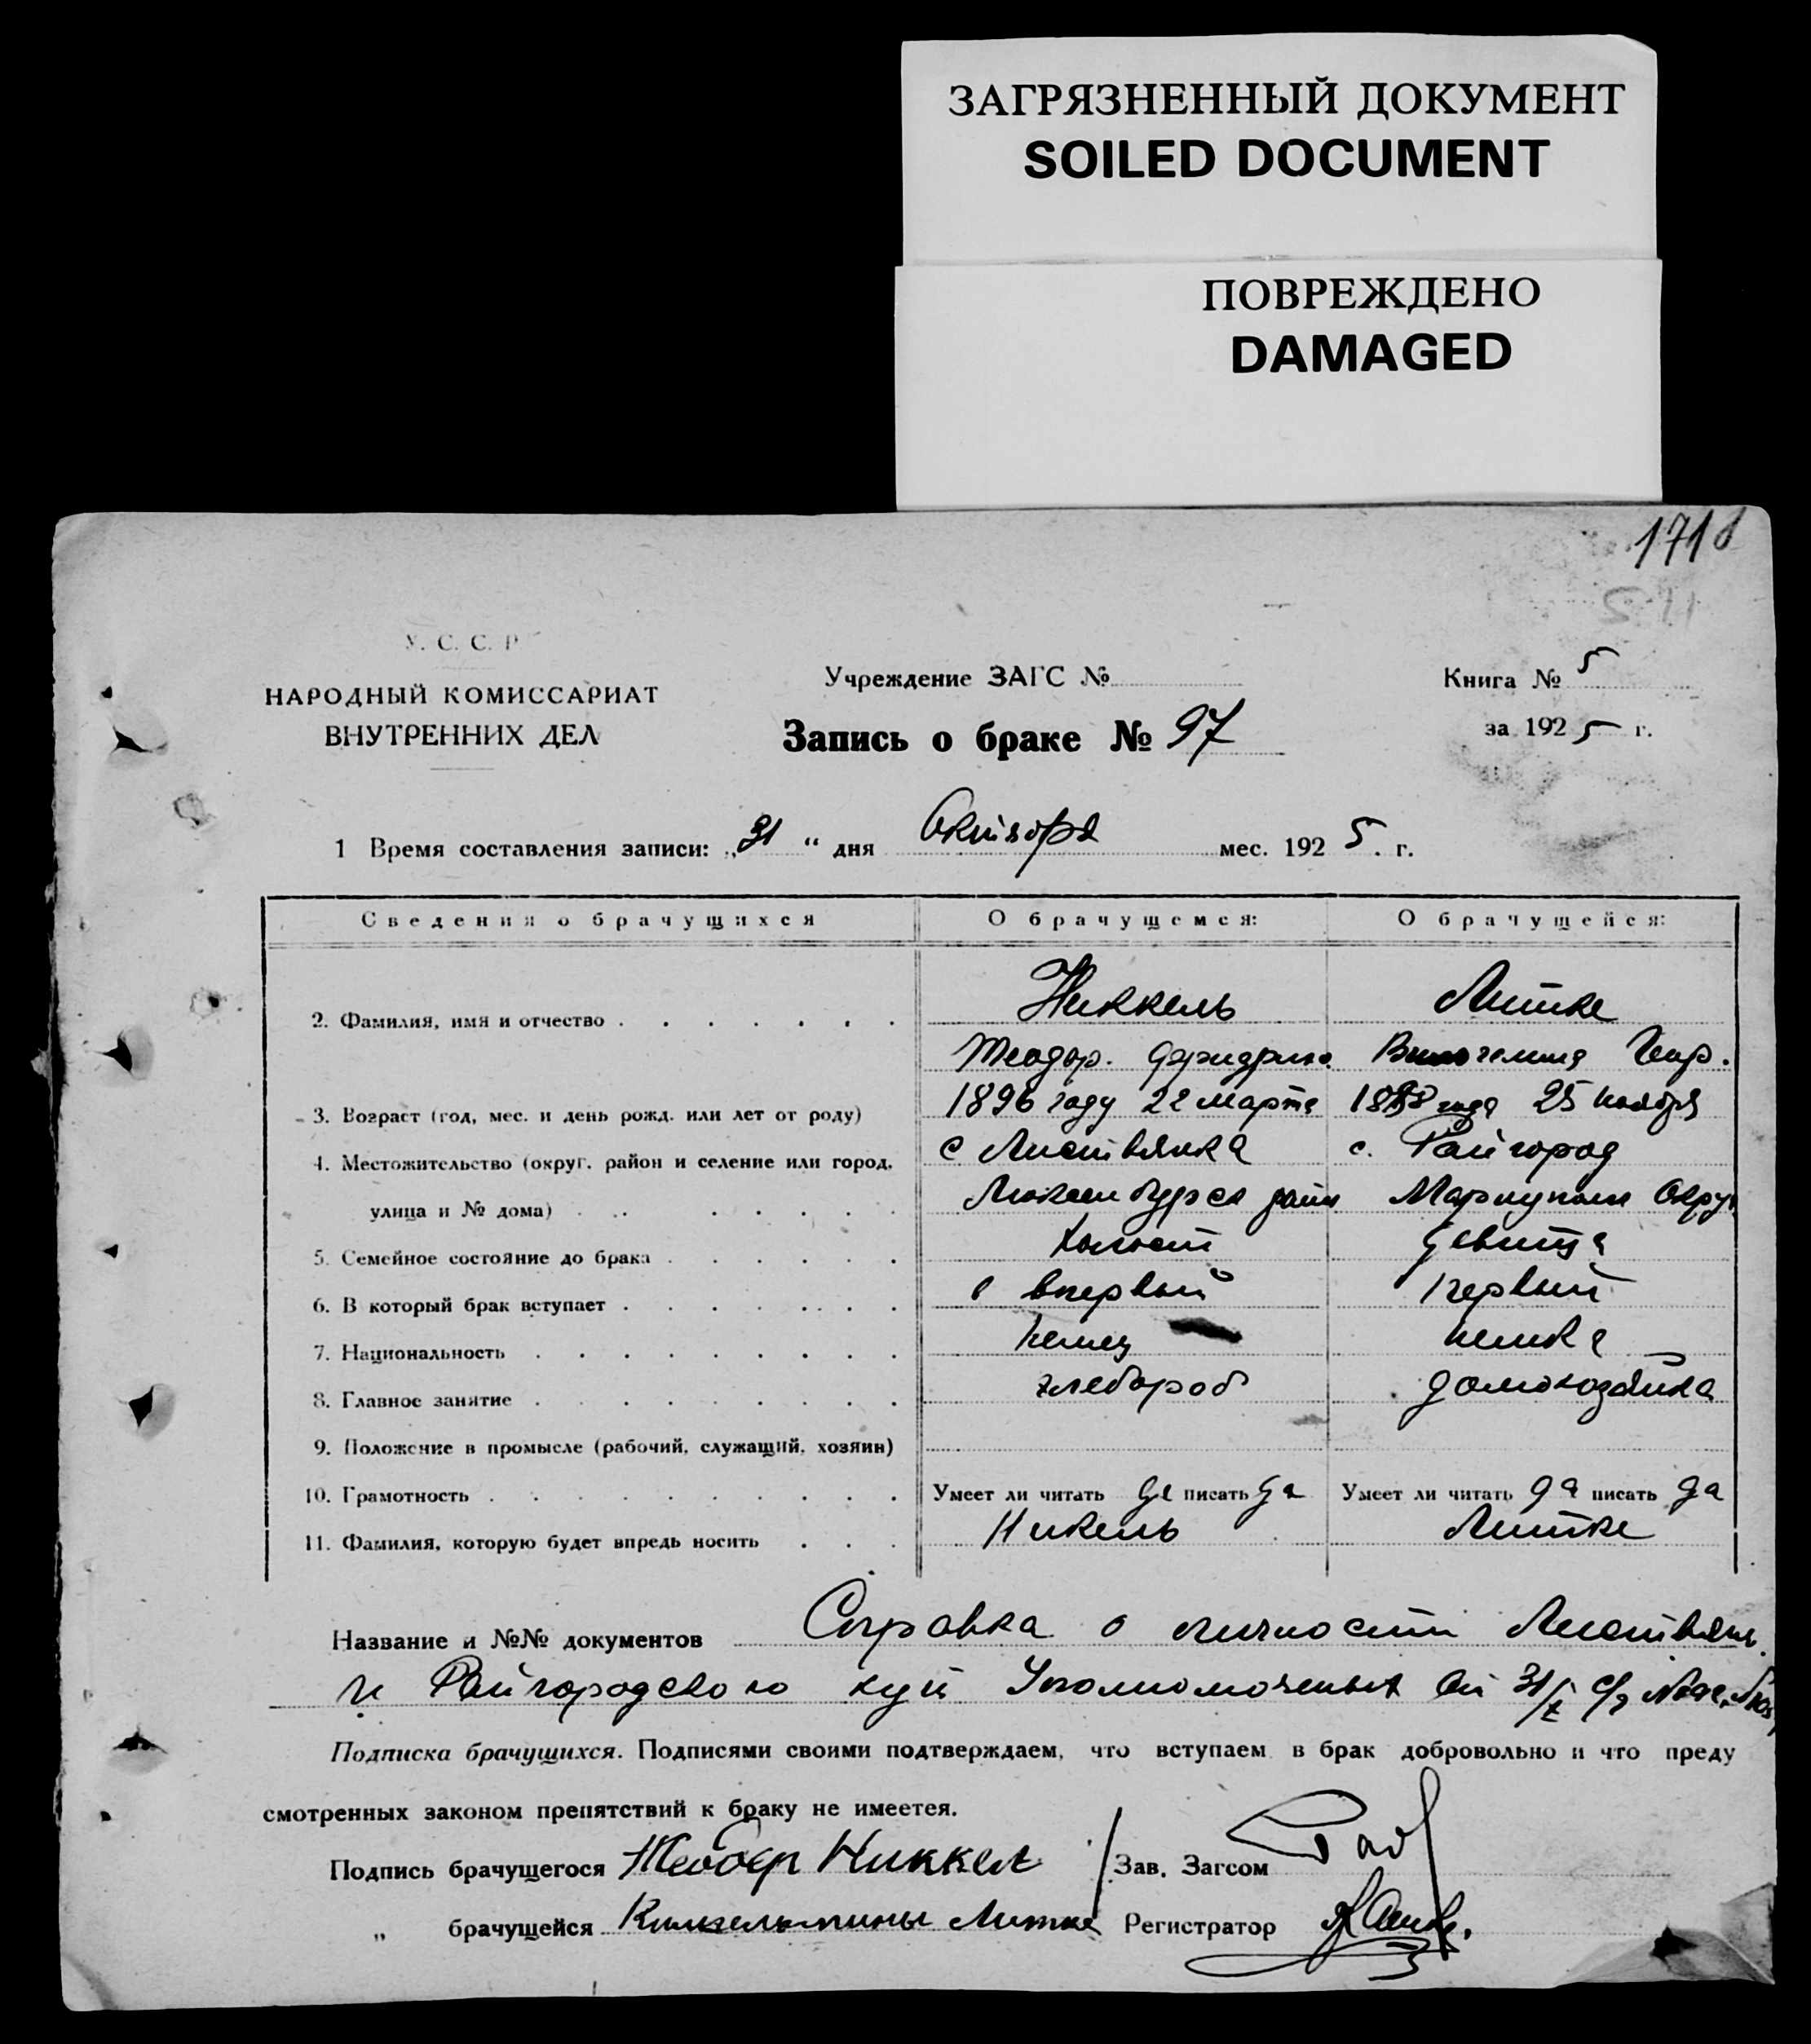 ЗАГРЯЗНЕННЫЙ ДОКУМЕНТ
SOILED DOCUMENT
ПОВРЕЖДЕНО
DAMAGED
171
У. С. С. Р
НАРОДНЫЙ КОМИССАРИАТ
ВНУТРЕННИХ ДЕЛ
Учреждение ЗАГС №
Запись о браке № 97
Книга № 5
за 1925 г.
1 Время составления записи: „31“ дня Октября мес. 1925. г.
Сведения о брачущихся О брачущемся: О брачущейся:
2. Фамилия, имя и отчество Никкель Литке
Теодор. Фридрихо. Вильгемина Генр.
3. Возраст (год, мес. и день рожд. или лет от роду) 1896 году 22 марта года 25 ноября
4. Местожительство (округ, район и селение или город, с Листвянка с. Райгород
улица и № дома) Люксембургск район Мариупольск Округ
5. Семейное состояние до брака холост девица
6. В который брак вступает впервый первый
7. Национальность немец немка
8. Главное занятие хлебороб домохозяйка
9. Положение в промысле (рабочий, служащий, хозяин)
10. Грамотность Умеет ли читать да писать да Умеет ли читать да писать да
11. Фамилия, которую будет впредь носить Никель Литке
Название и №№ документов Справка о личности Листвянк.
и Райгородского Уполномоченых от 31/X с/г
Подписка брачущихся. Подписями своими подтверждаем, что вступаем в брак добровольно и что преду
смотренных законом препятствий к браку не имеетея.
Подпись брачущегося Теодор Никкел Зав. Загсом
„ брачущейся Литке Регистратор